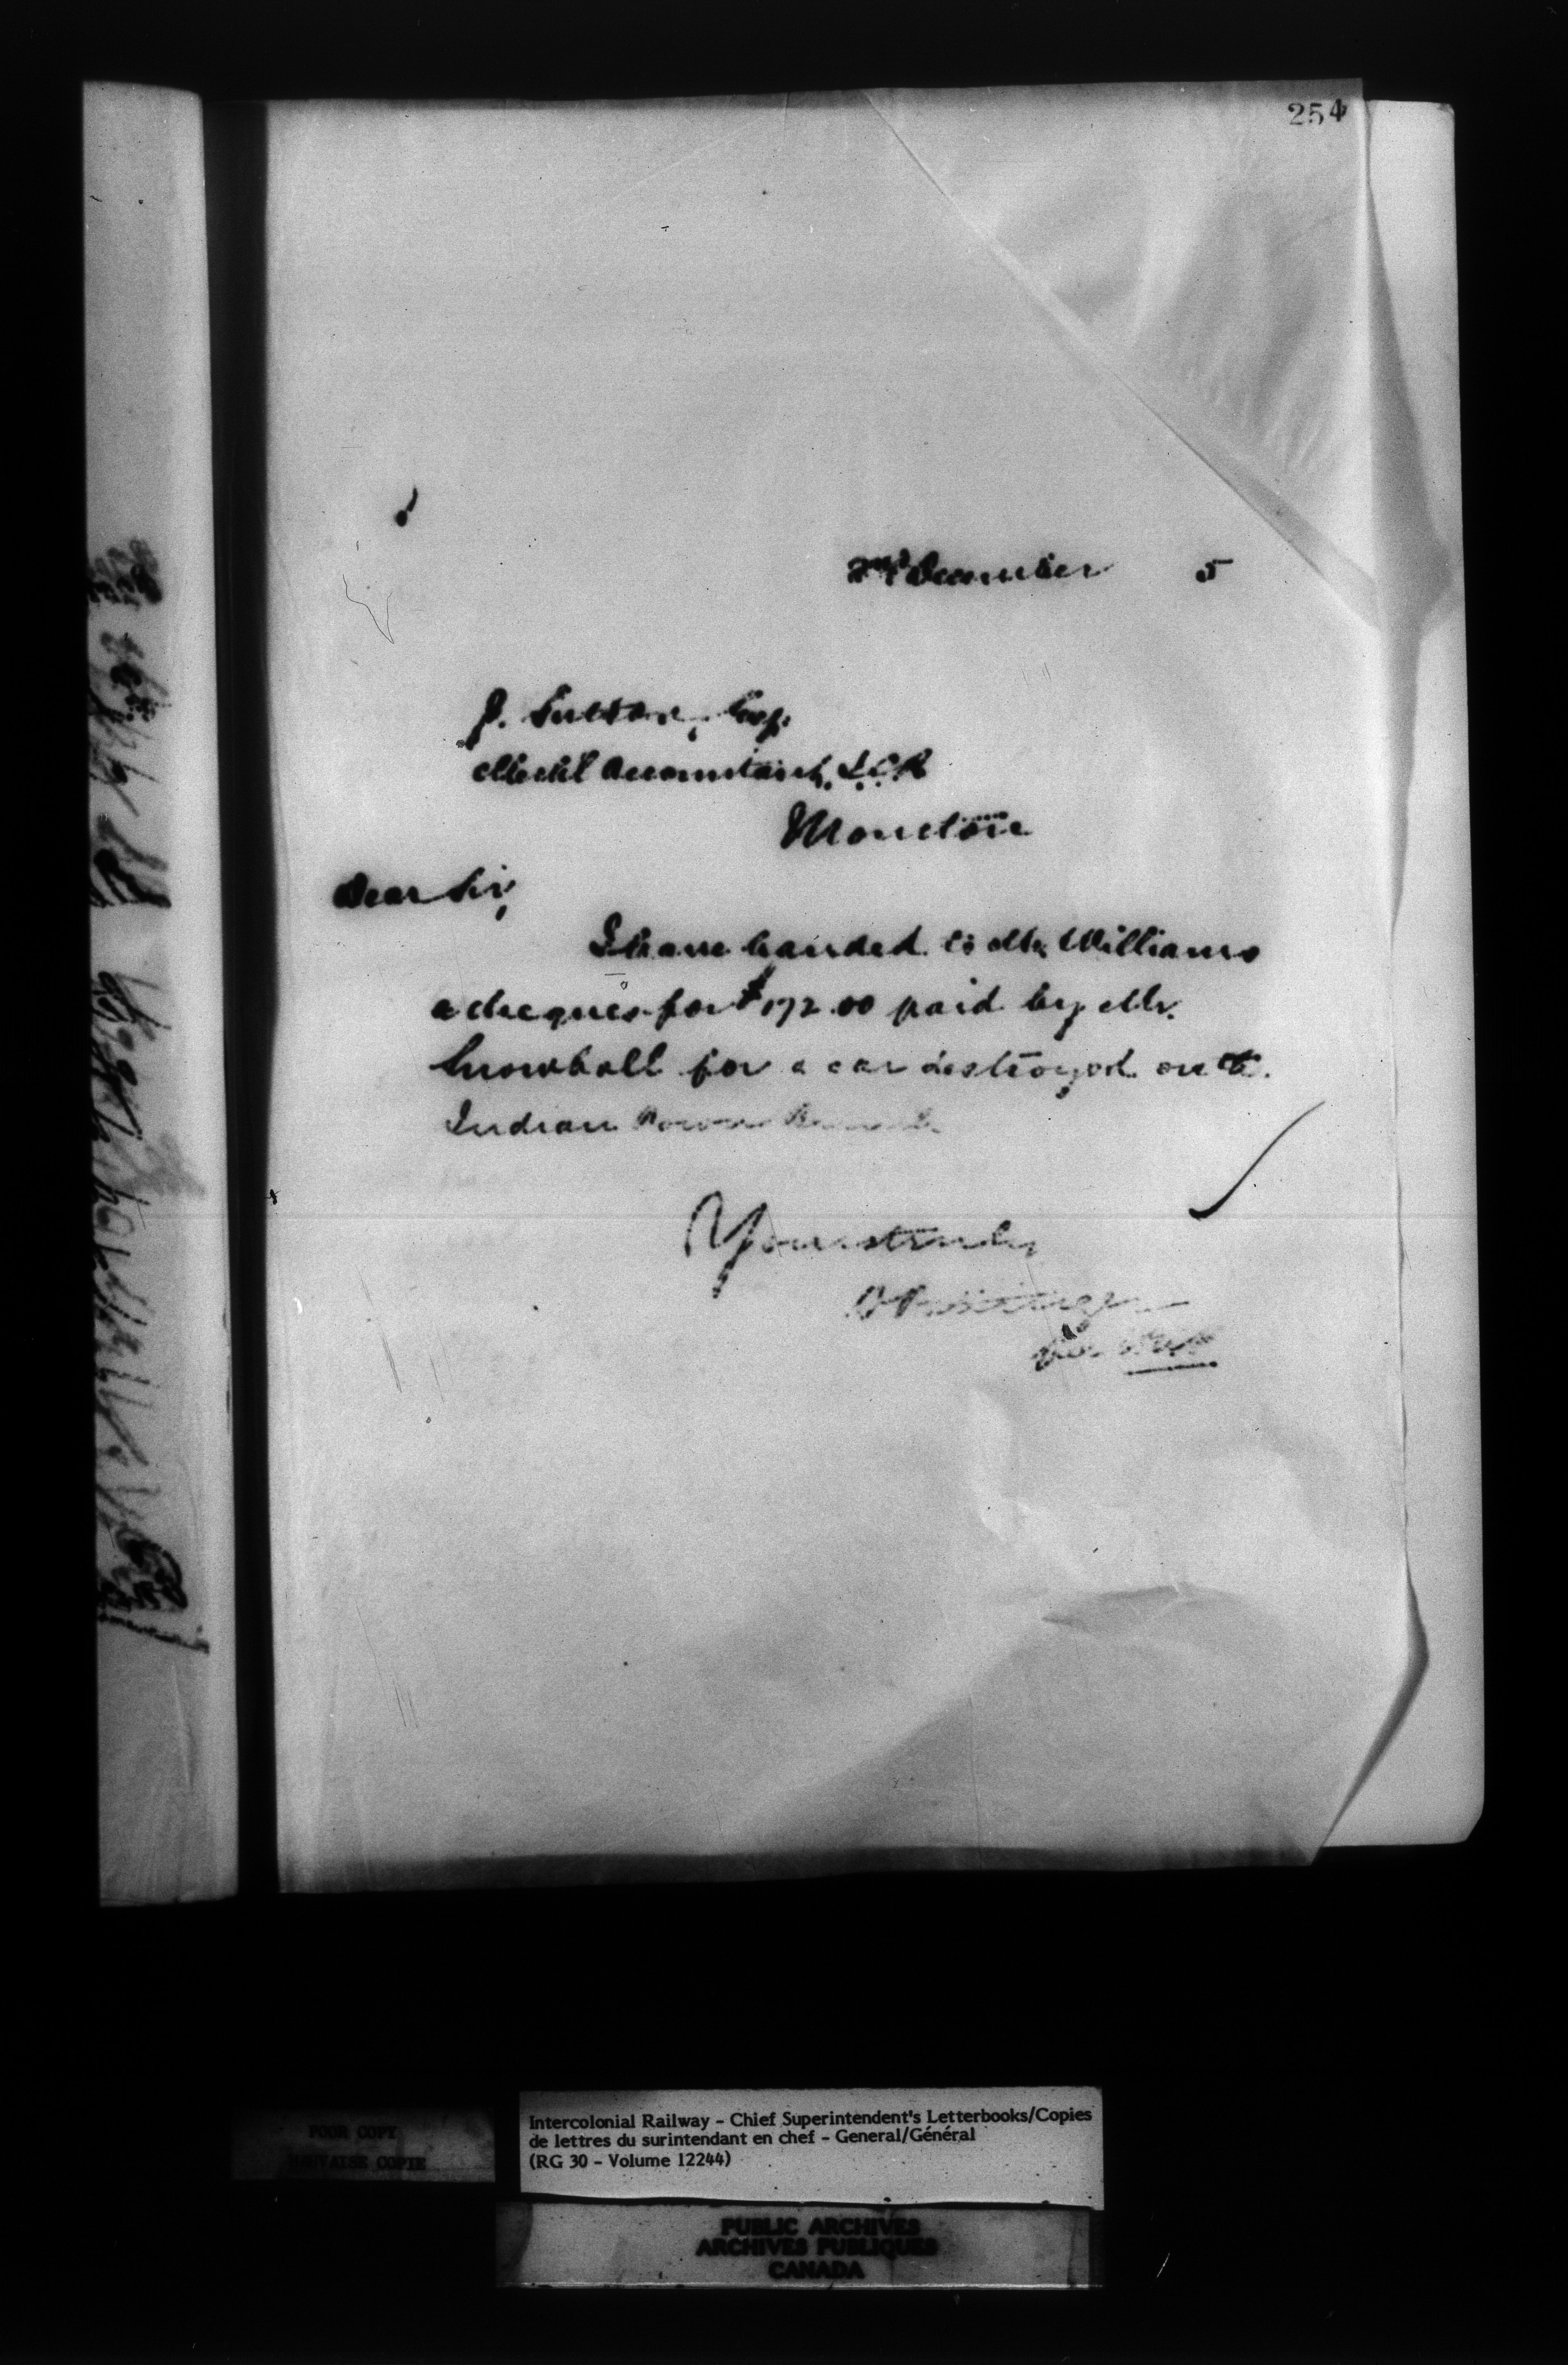 254
2nd December 5
J. Sutton, Esq.
Mechl Accountant, I.C.R
Moncton
Dear Sir,
I have handed to Mr Williams
a cheque for $172.00 paid by Mr.
Snowball for a car destroyed on the
Indian Town Branch
Yours truly
D Pottinger
POOR COPY
MAUVAISE COPIE
Intercolonial Railway - Chief Superintendent's Letterbooks/Copies
de lettres du surintendant en chef - General/Général
(RG 30 - Volume 12244)
PUBLIC ARCHIVES
ARCHIVES PUBLIQUES
CANADA